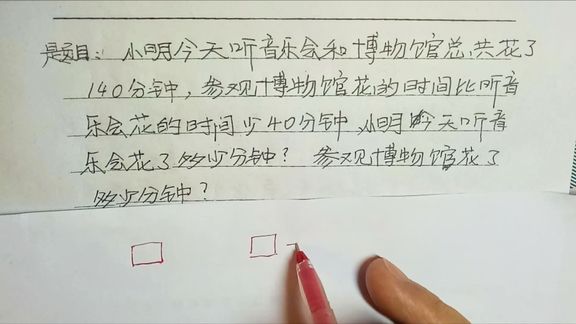 题目：小明今天听音乐会和博物馆总共花了
140分钟，参观博物馆花的时间比听音
乐会花的时间少40分钟 小明今天听音
乐会花了多少分钟？ 参观博物馆花了
多少分钟？